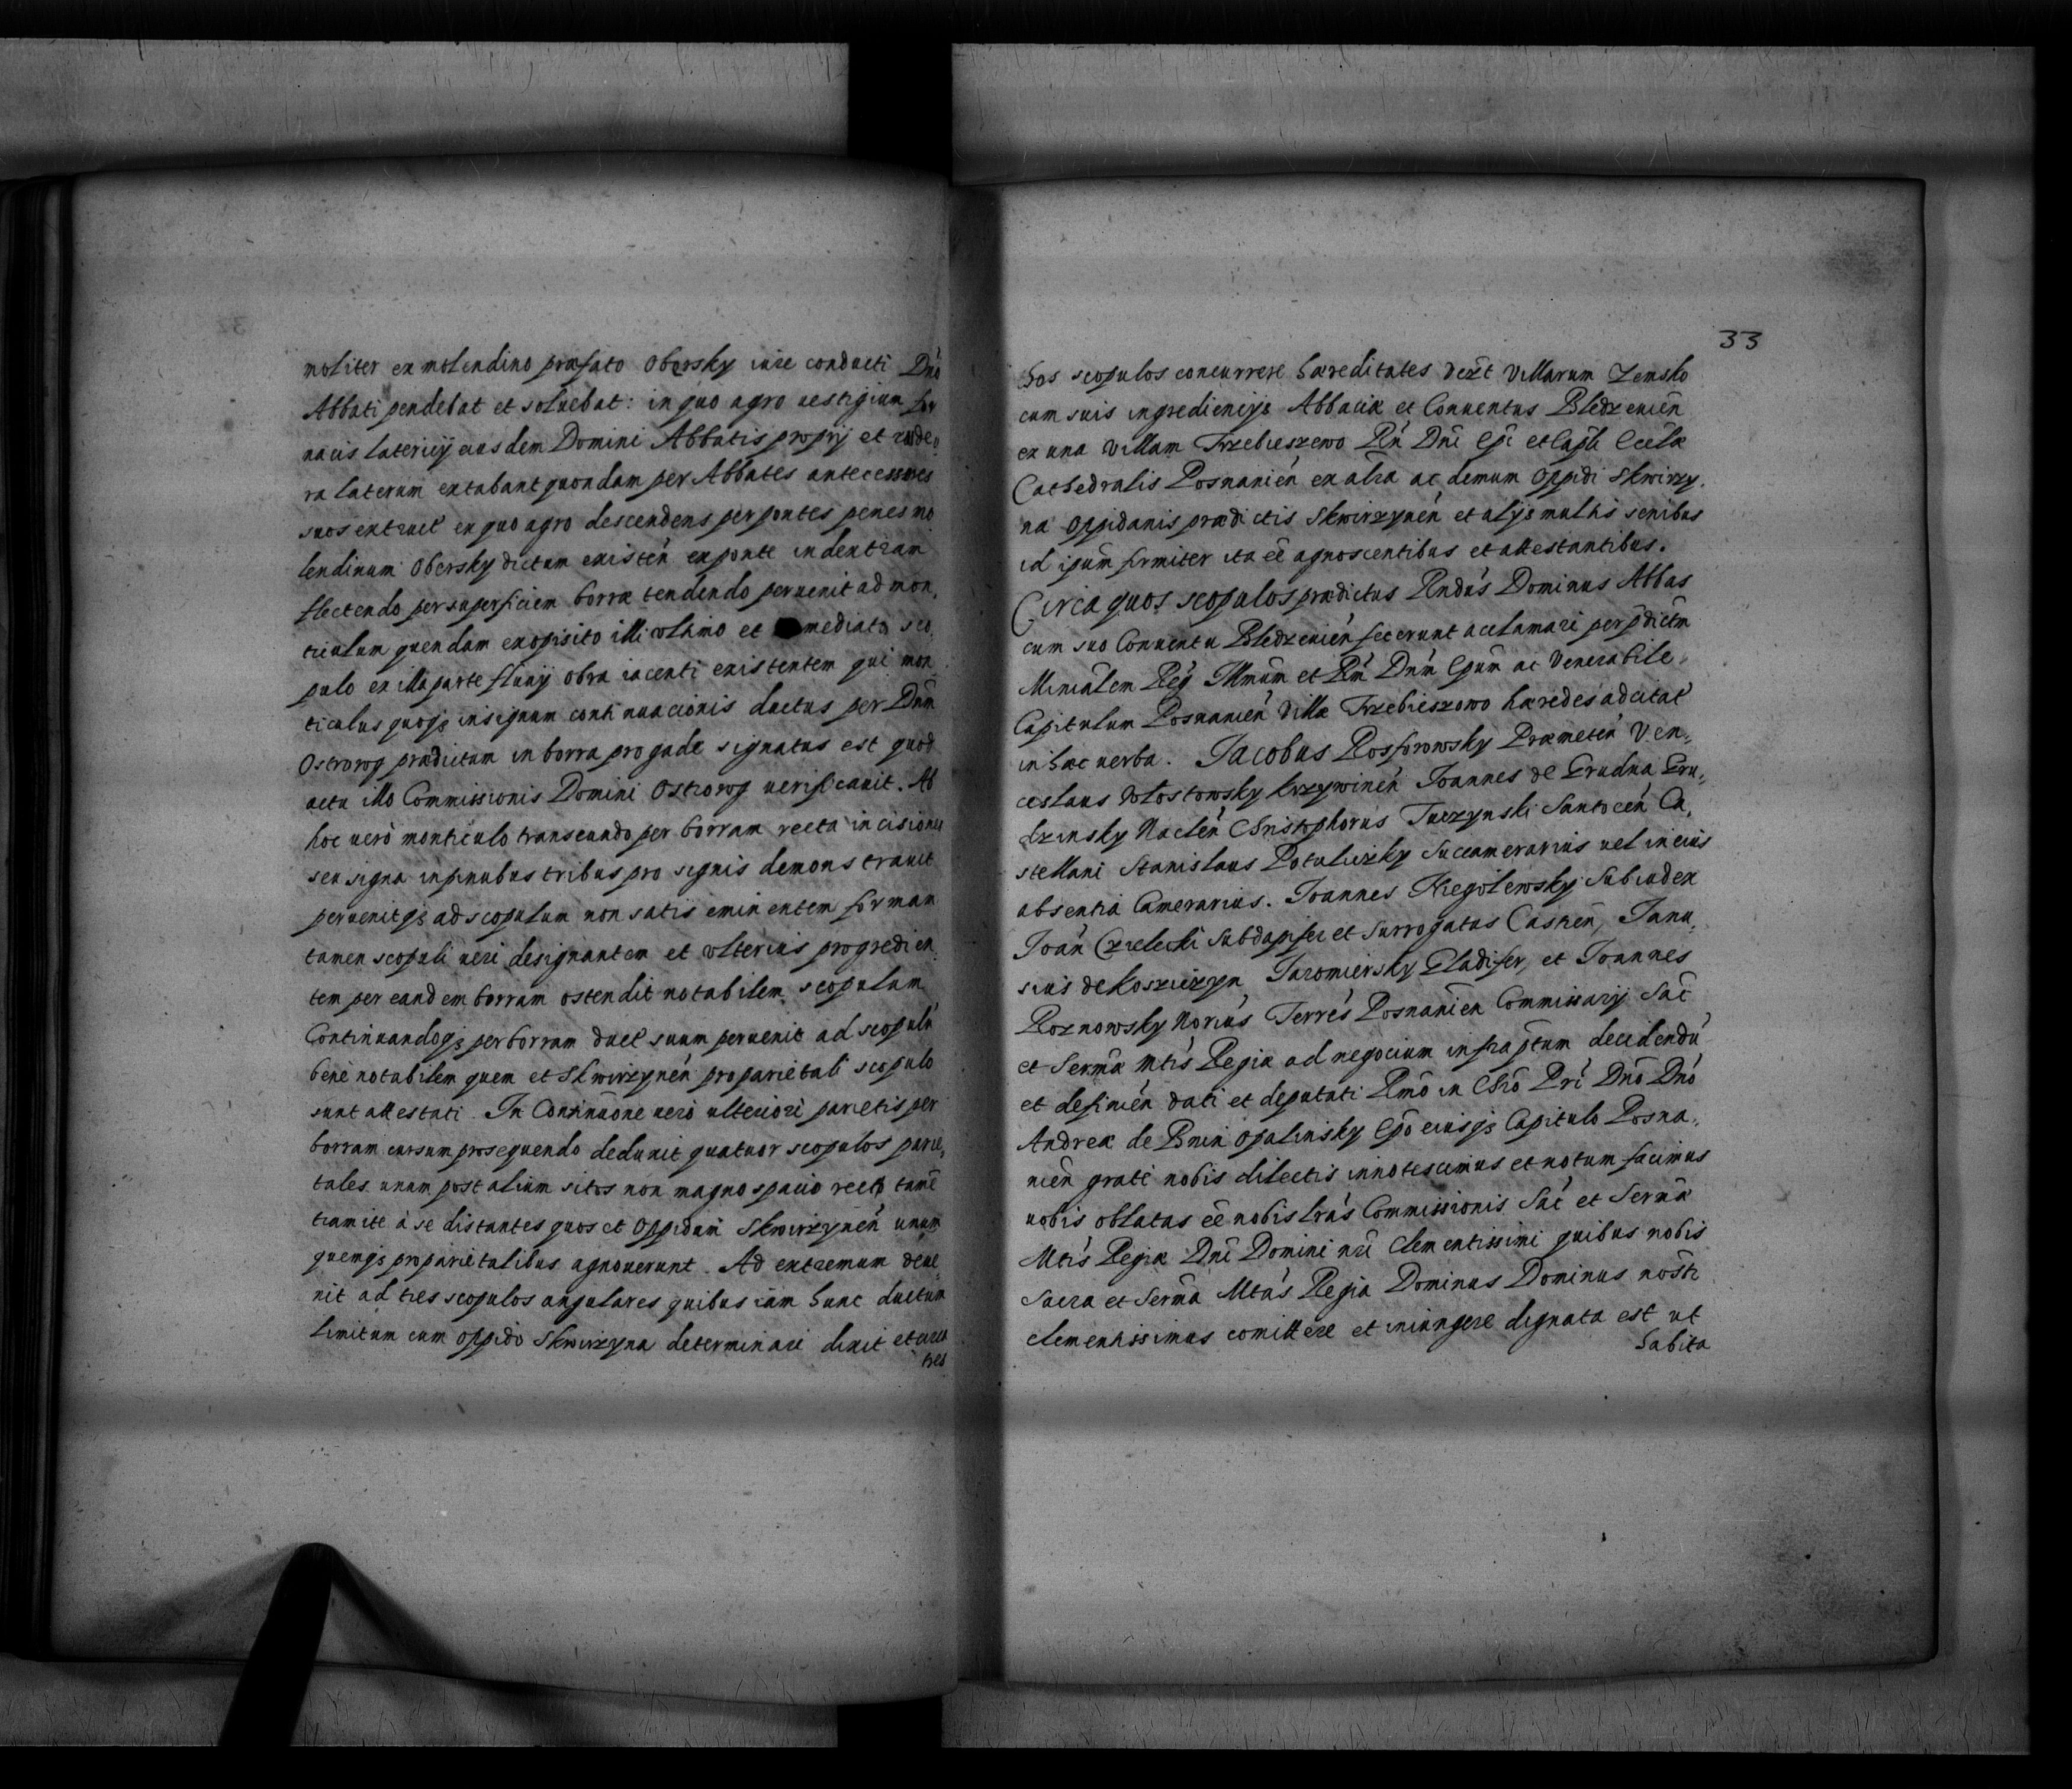 moliter ex molendino præfato Obersky iure conducti Dnō
Abbati pendebat et soluebat: in quo agro uestigium for
nacis latericij eiusdem Domini Abbatis proprij et rude
ra laterum extabant quondam per Abbates antecessores
suos extruct ex quo agro descendens per pontes penes mo
lendinum Obersky dictum existeń ex ponte in dextram
flectendo per superficiem borræ tendendo peruenit ad mon,
ticulum quendam exopisito illi vltimo et mediato sco,
pulo ex illa parte fluuij Obra iacenti existentem qui mon
ticulus quoqȝ in signum continuacionis ductus per Dnm̄
Ostrorog prædictum in borra pro gade signatus est quod
actu illo Commissionis Domini Ostrorog uerificauit. Ab
hoc uerò monticulo transeundo per borram recta incisiones
seu signa in pinubus tribus pro signis demonstrauit
peruenitqȝ ad scopulum non satis eminentem formam
tamen scopuli ueri designantem et vlterius progredien,
tem per eandem borram ostendit notabilem scopulum
Continuandoqȝ per borram duct suum peruenit ad scopulū
bene notabilem quem et Skwirzyneń pro parietali scopulo
sunt attestati. In Continuōne uerò ulteriori parietis per
borram cursum prosequendo deduxit quatuor scopulos parie,
tales unum post alium sitos non magno spacio recto tamē
tramite à se distantes quos et Oppidañ Skwirzyneń unum
quemqȝ pro parietalibus agnouerunt. Ad extremum deue,
nit ad tres scopulos angulares quibus iam hunc ductum
limitum cum oppido Skwirzyna determinari dixit et circa
tres
33
hos scopulos concurrere hæreditates vezt Villarum Zemsko
cum suis ingredienijs Abbaciæ et Conuentus Bledzeuień
ex una Villam Trzebieszewo Rn̄ Dnī Epi et Capli Ecclæ
Cathedralis Posnanień ex alia ac demum Oppidi Skwirzy,
na Oppidanis prædictis Skwirzyneń et alijs multis senibus
id ipsūm firmiter ita eē agnoscentibus et attestantibus.
Circa quos scopulos prædictus Rndus Dominus Abbas
cum suo Conuentu Bledzeuień fecerunt acclamari per pdictm̄
Ministālem Reg Illmum et Rm̄ Dnm̄ Epum ac Venerabile
Capitulum Posnanień Villæ Trzebieszowo hæredes ad citat
in hæc uerba. Jacobus Rosforowsky Præmeteń Ven,
ceslaus Wlostowsky Krzywineń Joannes de Grudna Gru,
dzinsky Nacleń Christophorus Turzynski Santoceń Ca,
stellani Stanislaus Potulizky Succamerarius uel in eius
absentia Camerarius. Joannes Niegolewsky Subiudex
Joań Czelecki Subdapifer et Surrogatus Castreń, Janu,
sius de Koszuczyn Jaromiersky Gladifer, et Joannes
Roznowsky Norius Terres Posnanień Commissarij Sac̄
et Sermæ Mtis Regiæ ad negocium infraptum decidendū
et definień dati et deputati Rmo in Chrō Pri Dnō Dnō
Andreæ de Bnin Opalinsky Epō eiusqȝ Capitulo Posna,
nień grate nobis dilectis innotescimus et notum facimus
uobis oblatas eē nobis lras Commissionis Sac̄ et Sermæ
Mtis Regiæ Dnī Domini nri Clementissimi quibus nobis
Sacra et Serma Mtas Regia Dominus Dominus nostr
clementissimus comittere et iniungere dignata est ut
habita